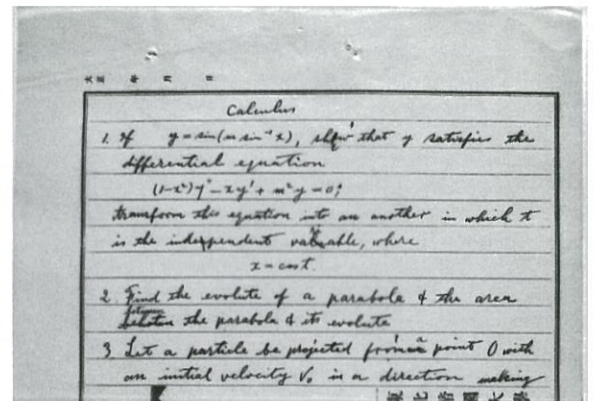 大正 年 月 日
Calculus
1. If y = sin(m sin⁻¹ x), show that y satisfies the
differential equation
(1-x²)y″ - xy′ + m²y = 0;
transform this equation into an another in which t
is the independent variable, where
x = cos t.
2. Find the evolute of a parabola & the area
between the parabola & its evolute
3. Let a particle be projected from a point O with
an initial velocity V₀ in a direction making
東北帝國大學